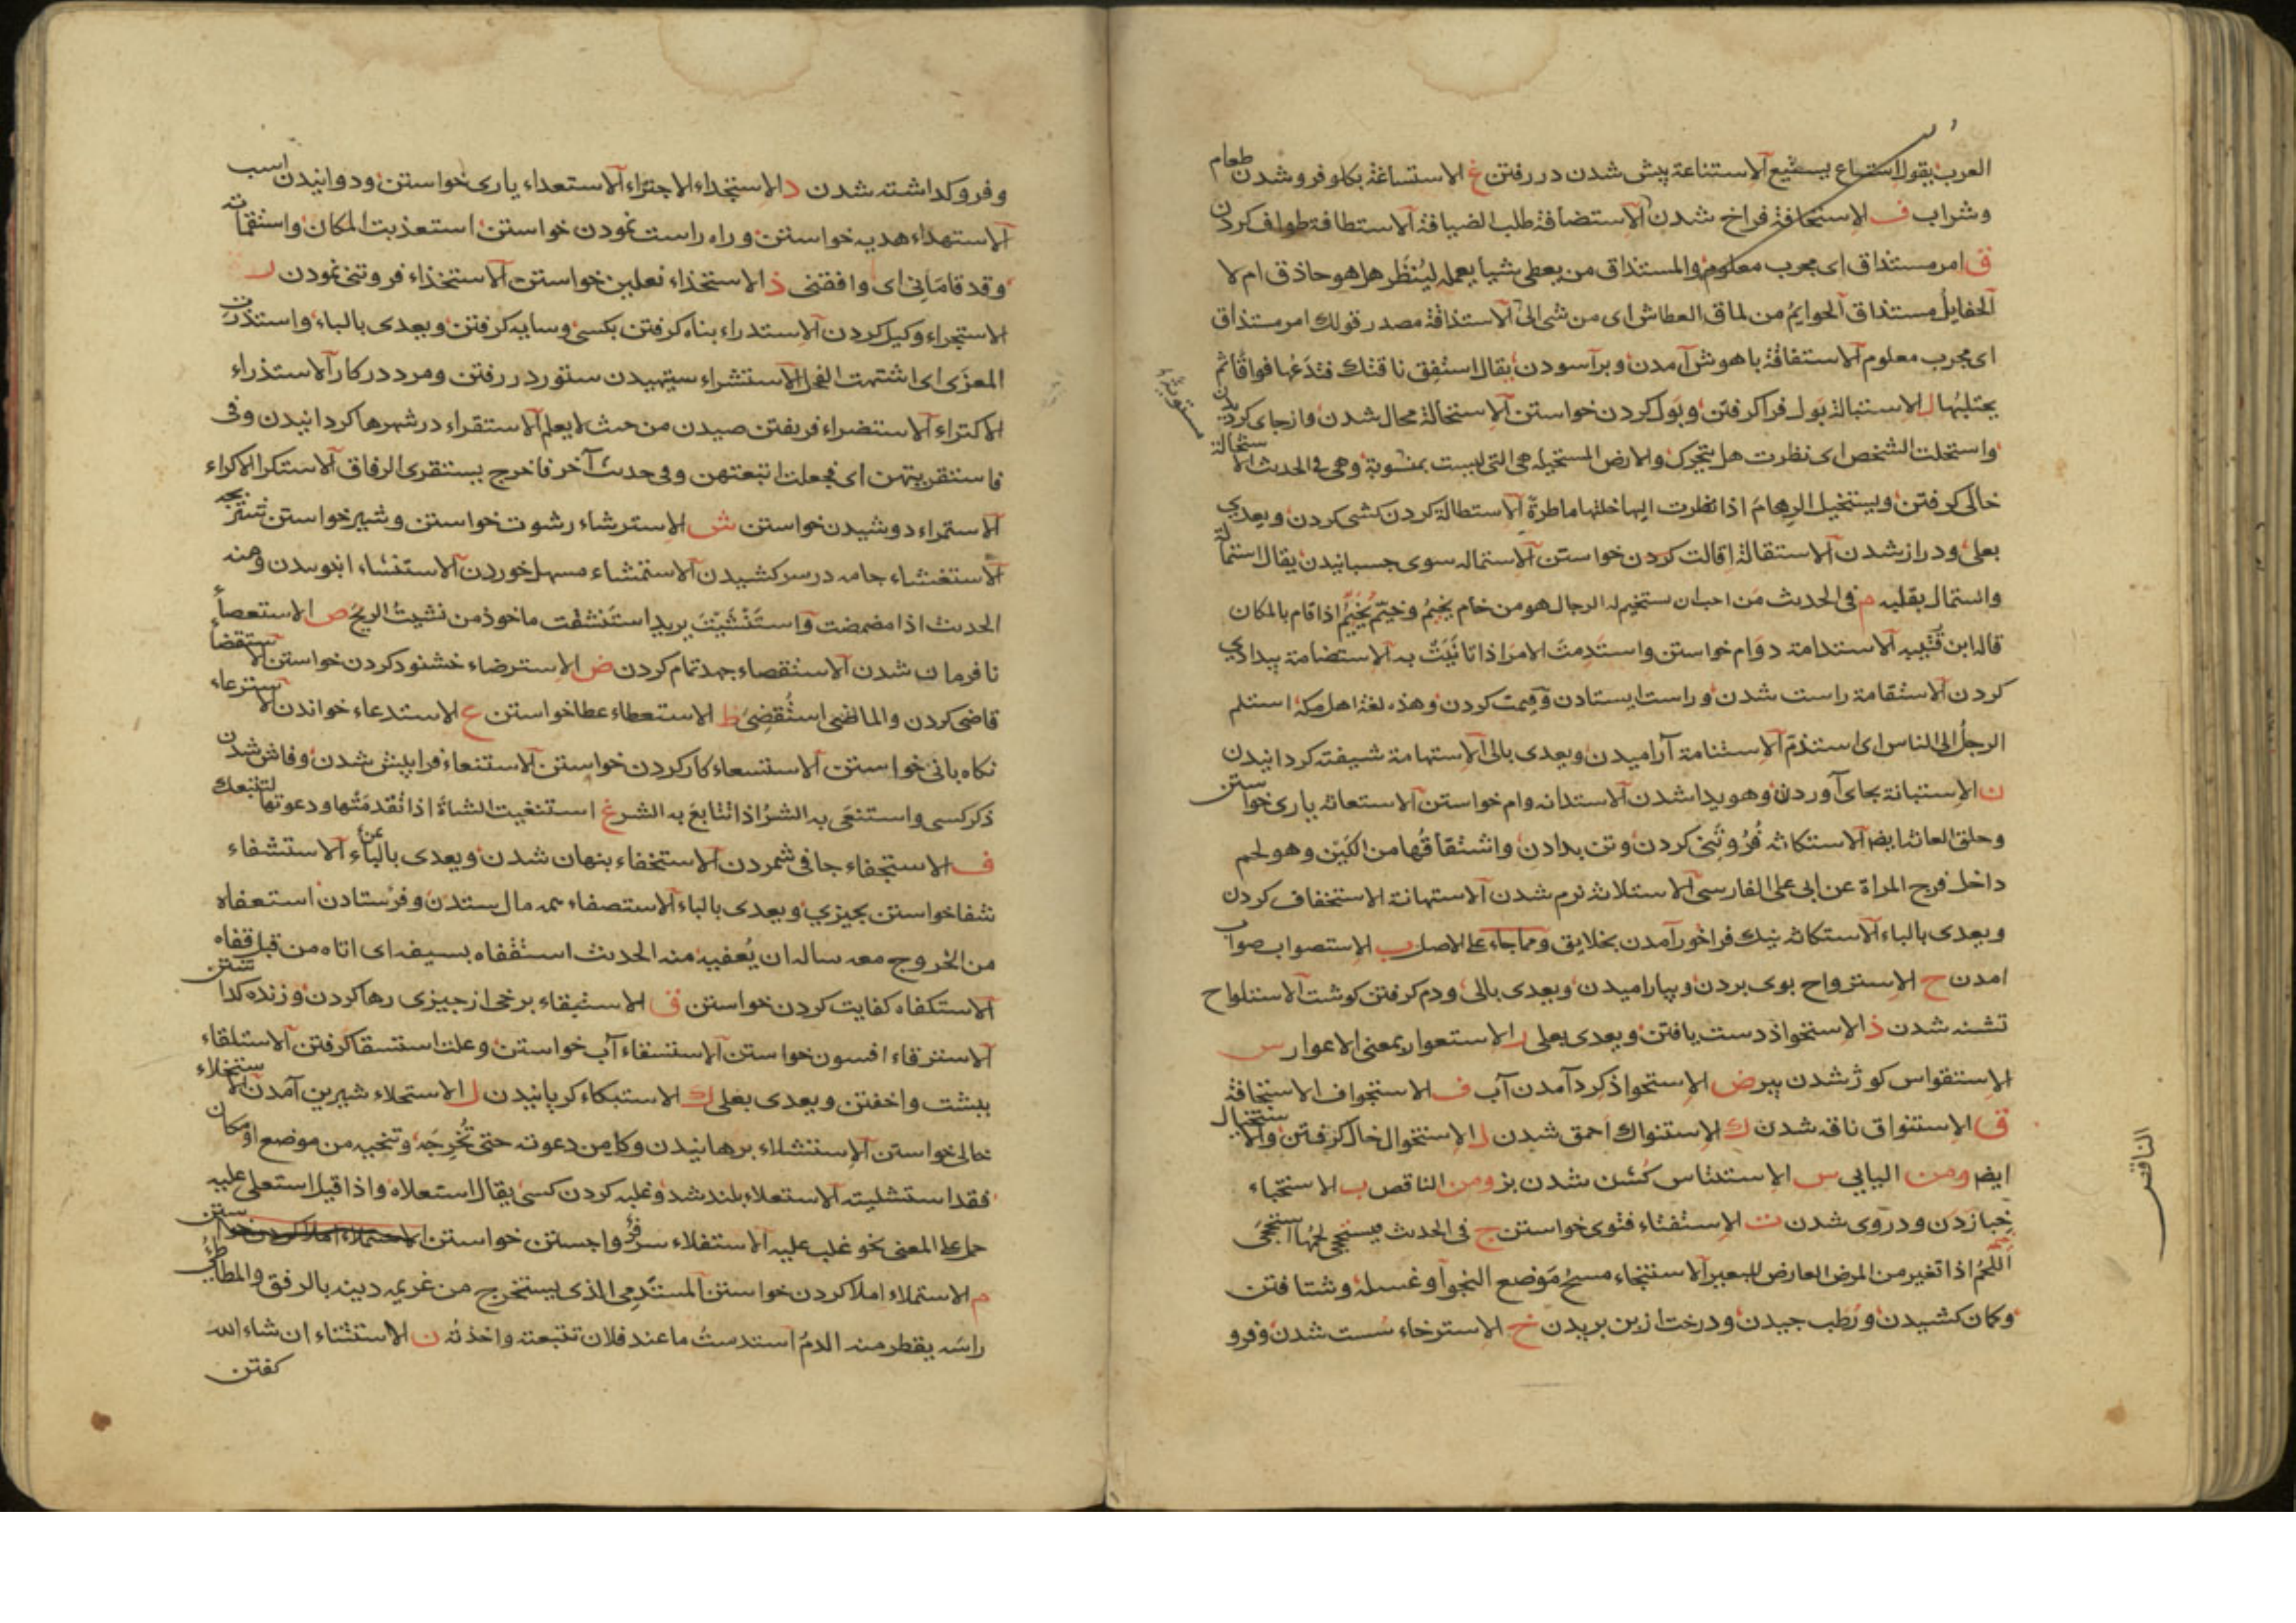 العرب يقول استباع يستبيع الاستناعة پیش شدن در رفتن غ الاستساغة بکلو فرو شدن طعام
وشراب ف الاستحافة فراخ شدن الاستضافة طلب الضیافة الاستطافة طواف کردن
ق امر مستذاق ای مجرب معلوم والمستذاق من یعطی شیأ یعمله لینظر هل هو حاذق ام لا
مستذاق من لماق العطاش ای من شی الی الاستذاقة مصدر قولك امر مستذاق
ای مجرب معلوم الاستفاقة باهوش آمدن وبر آسودن یقال استفق ناقتك فتدعها فواقا ثم
یحتلبها ل الاستبالة بول فرا کرفتن وبول کردن خواستن الاستحالة محال شدن واز جای کردیدن
واستحلت الشخص ای نظرت هل یتحرك والارض المستحیلة هی التی لیست بمستویة وهی فی الحدیث الاستخالة
خالی کرفتن ویستخیل الرهام اذا نظرت الیها خلتها ماطرة الاستطالة کردن کشی کردن ویعدی
بعلی ودراز شدن الاستقالة اقالت کردن خواستن الاستماله سوی جسبانیدن یقال استماله
واستمال بقلبه م فی الحدیث من احب ان یستخیم له الرجال هو من خام یخیم وخیم یخیم اذا قام بالمکان
قاله ابن قتیبه الاستدامة دوام خواستن واستدمت الامر اذا تأنیت به الاستضامة بیدادی
کردن الاستقامة راست شدن وراست ایستادن وقیمت کردن وهذه لغة اهل مکة استلم
الرجل الی الناس ای استذم الاستنامة آرامیدن ویعدی بالی الاستهامة شیفته کردانیدن
ن الاستبانة بجای آوردن وهویدا شدن الاستدانه وام خواستن الاستعانه یاری خواستن
وحلق العانة ایضا الاستکانة فروتنی کردن وتن بدادن واشتقاقها من الکین وهو لحم
داخل فرج المراة عن ابی علی الفارسی الاستلانه نرم شدن الاستهانة الاستخفاف کردن
ویعدی بالباء الاستکانه نیك فراخور آمدن بخلایق ومما جاء علی الاصل ب الاستصواب صواب
امدن ح الاسترواح بوی بردن وبیارامیدن ویعدی بالی ودم کرفتن کوشت الاستلواح
تشنه شدن ذ الاستحواذ دست یافتن ویعدی بعلی ر الاستعوار بمعنی الاعوار س
الاستقواس کوژ شدن پیر ض الاستحواذ کرد آمدن آب ف الاستجواف الاستجافة
ق الاستنواق ناقه شدن ك الاستنواك احمق شدن ل الاستخوال خال کرفتن والاستخیال
ایضا ومن الیایی س الاستتیاس کشن شدن بز ومن الناقص ب الاستخباء
خبا زدن ودروی شدن ت الاستفتاء فتوی خواستن ج فی الحدیث یستجی لحمها استجی
اللحم اذا تغیر من المرض العارض للبعیر الاستنجاء مسح موضع النجو او غسله وشتافتن
وکمان کشیدن ورطب جیدن ودرخت از بن بریدن خ الاسترخاء سست شدن وفرو
الناقص
وفرو کداشته شدن د الاستجداء الاجتزاء الاستعداء یاری خواستن ودوانیدن اسب
الاستهداء هدیه خواستن وراه راست نمودن خواستن استعذبت المکان واستقمأت
وقد قامانی ای وافقنی ذ الاستحذاء نعلین خواستن الاستخذاء فروتنی نمودن ر
الاستجراء وکیل کردن الاستدراء بناه کرفتن بکسی وسایه کرفتن ویعدی بالباء واستذرت
المعزی ای اشتهت الفحل الاستشراء ستیهیدن ستور در رفتن ومرد در کار الاستذراء
الاکتراء الاستضراء فریفتن صیدن من حیث لا یعلم الاستقراء در شهرها کردانیدن وفی
فاستقریتهن ای فجعلت اتبعتهن وفی حدیث آخر فاخرج یستقری الرفاق الاستکرا الاکراء
الاستمراء دوشیدن خواستن ش الاسترشاء رشوت خواستن وشیر خواستن شتربجه
الاستغشاء جامه در سر کشیدن الاستمشاء مسهل خوردن الاستنشاء انبوییدن ومنه
الحدیث اذا مضمضت واستنشیت یرید استنشقت ماخوذ من نشیت الریح ص الاستعصاء
نافرمان شدن الاستقصاء جهد تمام کردن ض الاسترضاء خشنود کردن خواستن الاستقضاء
قاضی کردن والماضی استقضی ط الاستعطاء عطا خواستن ع الاستدعاء خواندن الاسترعاء
نکاه بانی خواستن الاستسعاء کار کردن خواستن الاستنعاء فرا پیش شدن وفاش شدن
ذکر کسی واستنعی به الشر اذا تتابع به الشر غ استنغیت الشاة اذا تقدمتها ودعوتها لتتبعك
ف الاستجفاء جافی شمردن الاستخفاء بنهان شدن ویعدی بالباء عن الاستشفاء
شفا خواستن بجیزی ویعدی بالباء الاستصفاء همه مال ستدن وفرستادن استعفاه
من الخروج معه ساله ان یعفیه منه الحدیث استقفاه بسیفه ای اتاه من قبل قفاه
الاستکفاه کفایت کردن خواستن ق الاستبقاء برخی از جیزی رها کردن وزنده کداشتن
الاسترقاء افسون خواستن الاستسقاء آب خواستن وعلت استسقا کرفتن الاستلقاء
ببشت واخفتن ویعدی بعلی ك الاستبکاء کریانیدن ل الاستحلاء شیرین آمدن الاستخلاء
خالی خواستن الاستشلاء برهانیدن وکل من دعوته حتی تخرجه وتنجیه من موضع او مکان
فقد استشلیته الاستعلاء بلند شد وغلبه کردن کسی یقال استعلاه واذا قیل استعلی علیه
حمل علی المعنی نحو غلب علیه الاستفلاء سر فرو واجستن خواستن
م الاستملاء املا کردن خواستن المستدمی الذی یستخرج من غریمه دینه بالرفق والمطاطئ
راسه یقطر منه الدم استدمیت ما عند فلان تتبعته واخذته ن الاستثناء ان شاء الله
کفتن